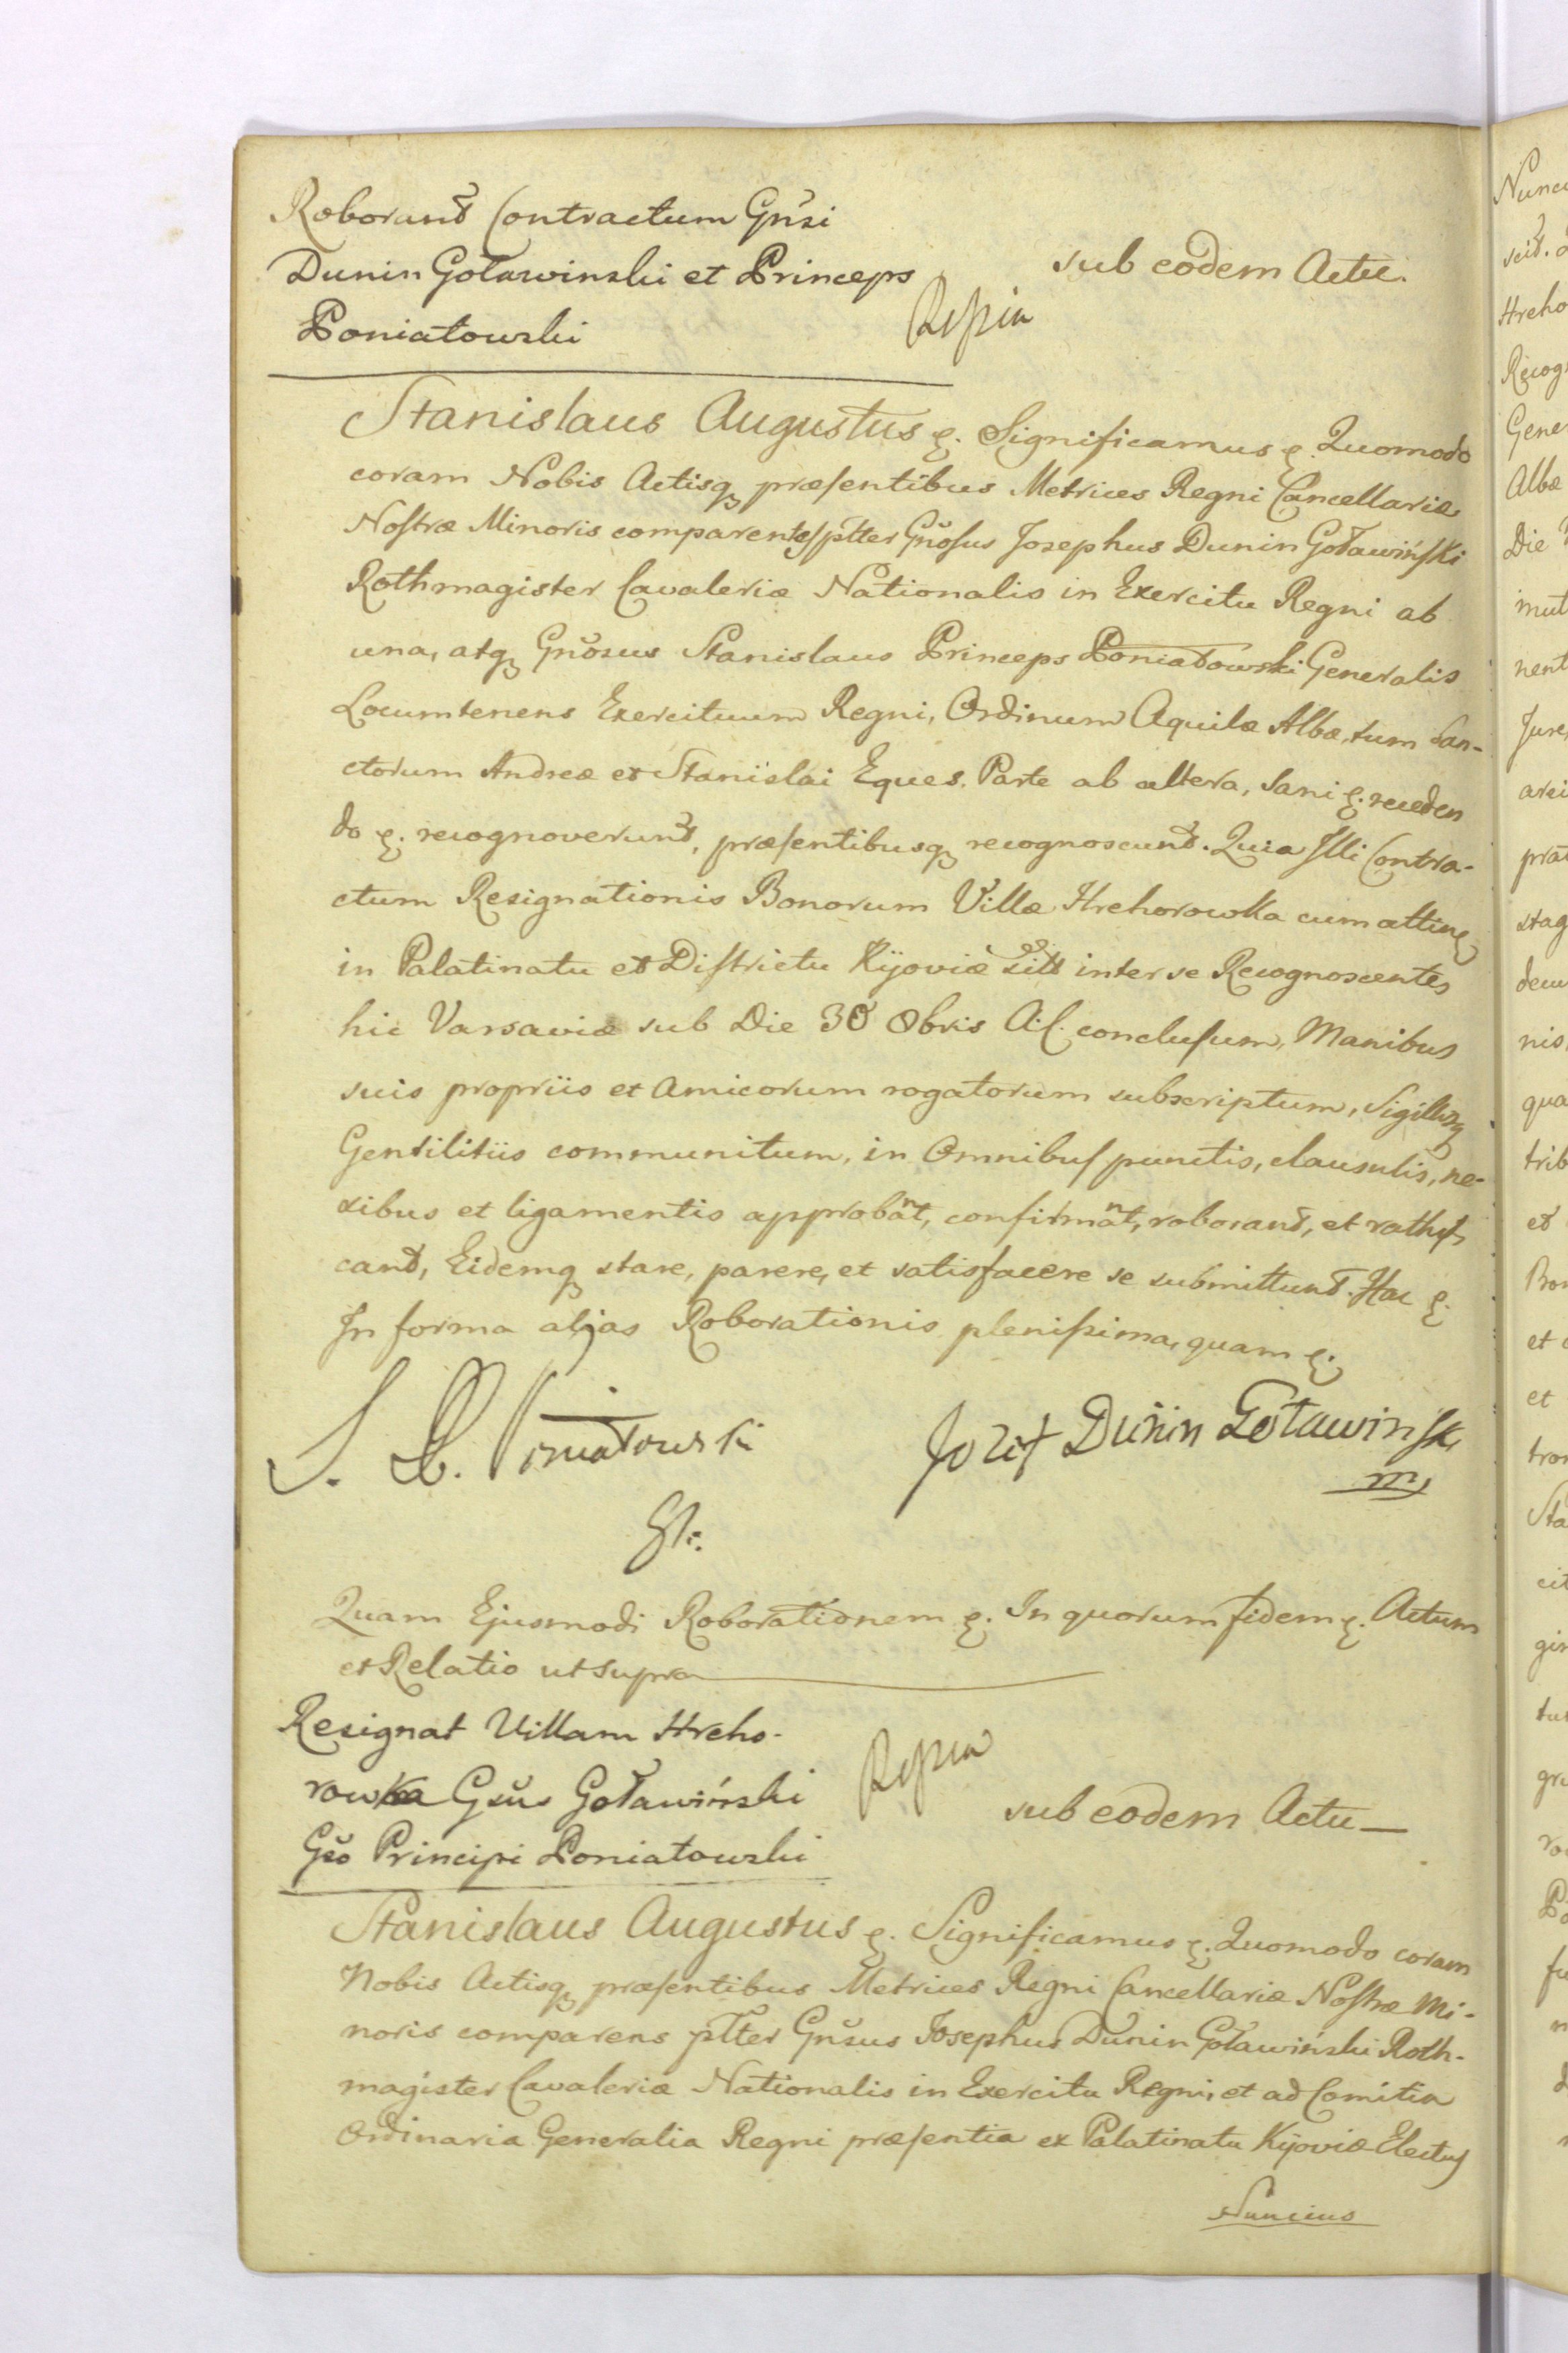 Roborant Contractum Gnŏsi
Dunin Goławinski et Princeps
Poniatowski
sub eodem Actu.
Stanislaus Augustus ę. Significamus ę. Quomodo
coram Nobis Actisq præsentibus Metrices Regni Cancellariæ
Nostræ Minoris comparentes pltter Gnŏsus Josephus Dunin Goławiński
Rothmagister Cavaleriæ Nationalis in Exercitu Regni ab
una, atq Gnŏsus Stanislaus Princeps Poniatowski Generalis
Locumtenens Exercituum Regni, Ordinum Aquilæ Albæ, tum San-
ctorum Andreæ et Stanislai Eques. Parte ab altera, Sani ę. receden
do ę. recognoverunt, præsentibusq recognoscunt. Quia Illi Contra-
ctum Resignationis Bonorum Villæ Hrehorowka cum attinę
in Palatinatu et Districtu Kijoviæ inter se Recognoscentes
hic Varsaviæ sub Die 30 8bris A.C. conclusum, Manibus
suis propriis et Amicorum rogatorum subscriptum, Sigillisq
Gentilitiis communitum, in Omnibus punctis, clausulis, ne-
xibus et ligamentis approbañt, confirmañt, roborant, et rathifi
cant, Eidemq stare, parere, et satisfacere se submittunt. Hac ę.
In forma aljas Roborationis plenissima, quam ę.
S. P. Poniatowski
Jozef Dunin Goławinski
mp
Quam Ejusmodi Roborationem ę. In quorum fidem ę. Actum
et Relatio ut supra
Resignat Villam Hreho-
rowka Gsŭs Goławiński
Gsŏ Principi Poniatowski
sub eodem Actu
Stanislaus Augustus ę. Significamus ę. Quomodo coram
Nobis Actisq præsentibus Metrices Regni Cancellariæ Nostræ Mi-
noris comparens pltter Gnŏsus Josephus Dunin Goławiński Roth-
magister Cavaleriæ Nationalis in Exercitu Regni, et ad Comitia
Ordinaria Generalia Regni præsentia ex Palatinatu Kijoviæ Electus
Nuncius